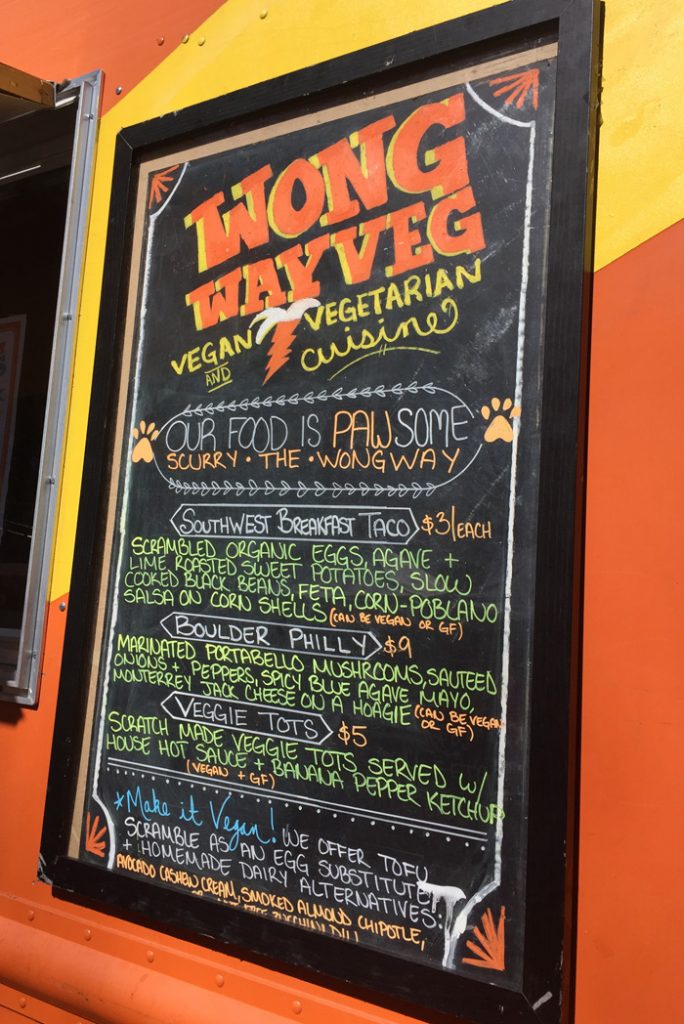 WONG
WAYVEG
VEGAN AND VEGETARIAN
cuisine
OUR FOOD IS PAWSOME
SCURRY · THE · WONGWAY
SOUTHWEST BREAKFAST TACO $3/EACH
SCRAMBLED ORGANIC EGGS, AGAVE +
LIME ROASTED SWEET POTATOES, SLOW
COOKED BLACK BEANS, FETA, CORN-POBLANO
SALSA ON CORN SHELLS (CAN BE VEGAN OR GF)
BOULDER PHILLY $9
MARINATED PORTABELLO MUSHROOMS, SAUTEED
ONIONS + PEPPERS, SPICY BLUE AGAVE MAYO,
MONTERREY JACK CHEESE ON A HOAGIE (CAN BE VEGAN
OR GF)
VEGGIE TOTS $5
SCRATCH MADE VEGGIE TOTS SERVED W/
HOUSE HOT SAUCE + BANANA PEPPER KETCHUP
(VEGAN + GF)
*Make it Vegan! WE OFFER TOFU
SCRAMBLE AS AN EGG SUBSTITUTE,
+ HOMEMADE DAIRY ALTERNATIVES:
AVOCADO CASHEW CREAM, SMOKED ALMOND CHIPOTLE,
ZUCCHINI DILL